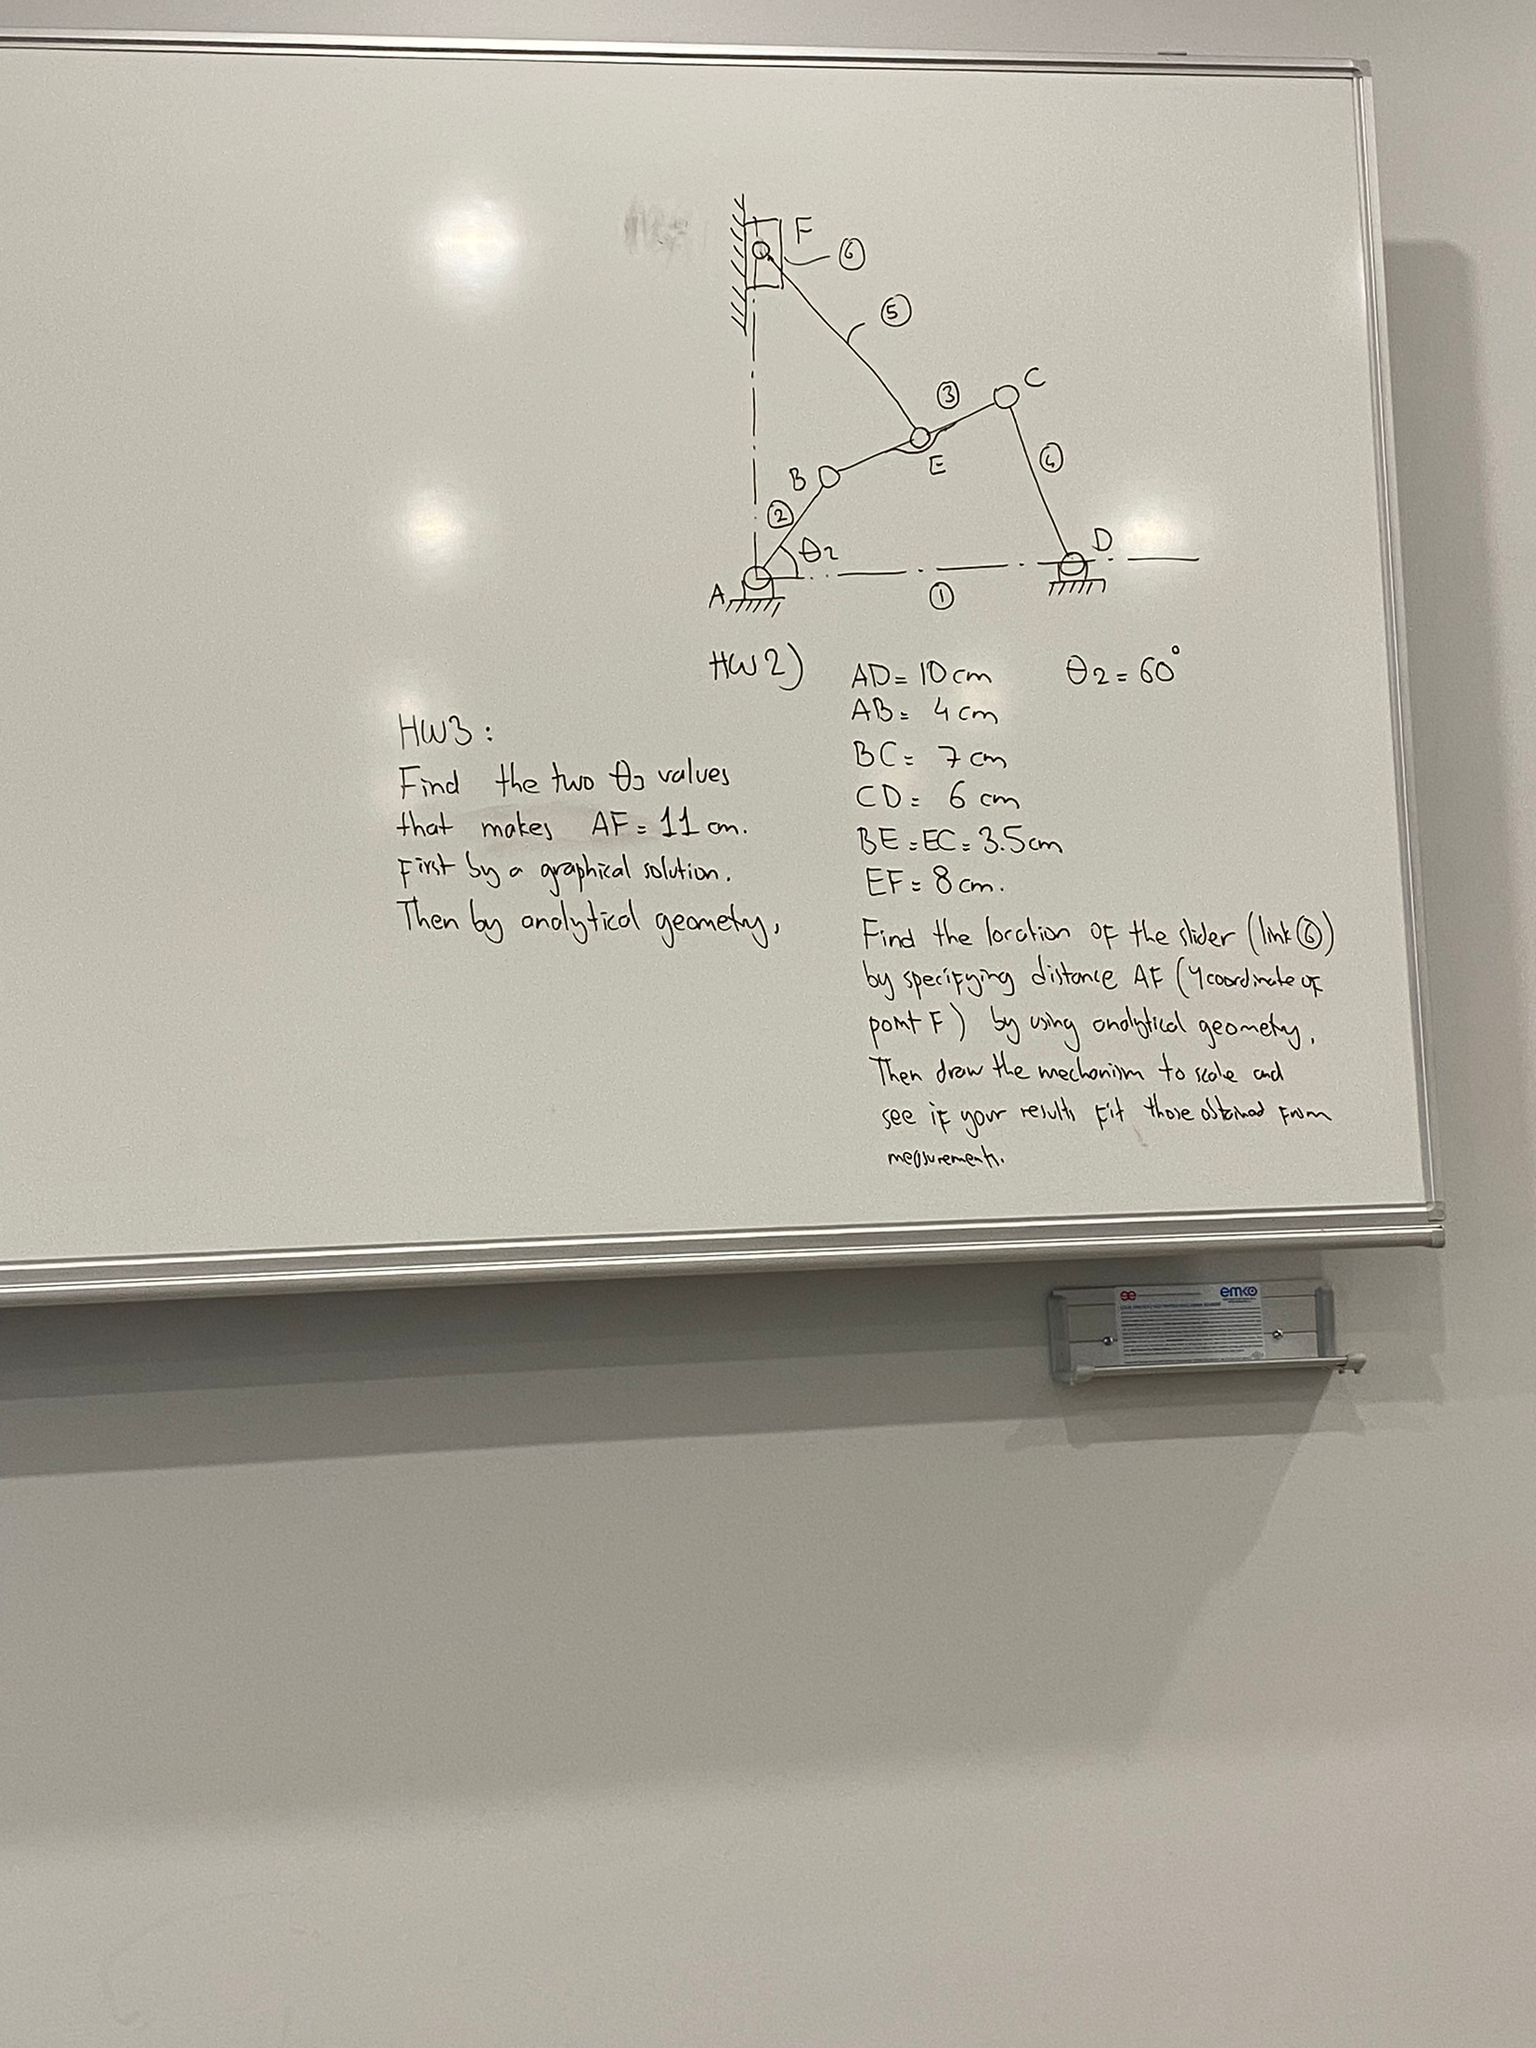 F
⑥
⑤
C
③
B
E
④
②
θ2
D
A
①
HW2)
AD = 10 cm θ2 = 60°
AB = 4 cm
BC = 7 cm
CD = 6 cm
BE = EC = 3.5 cm
EF = 8 cm.
Find the location of the slider (link ⑥)
by specifying distance AF (y coordinate of
point F) by using analytical geometry.
Then draw the mechanism to scale and
see if your results fit those obtained from
measurements.
HW3:
Find the two θ2 values
that makes AF = 11 cm.
First by a graphical solution.
Then by analytical geometry,
emko